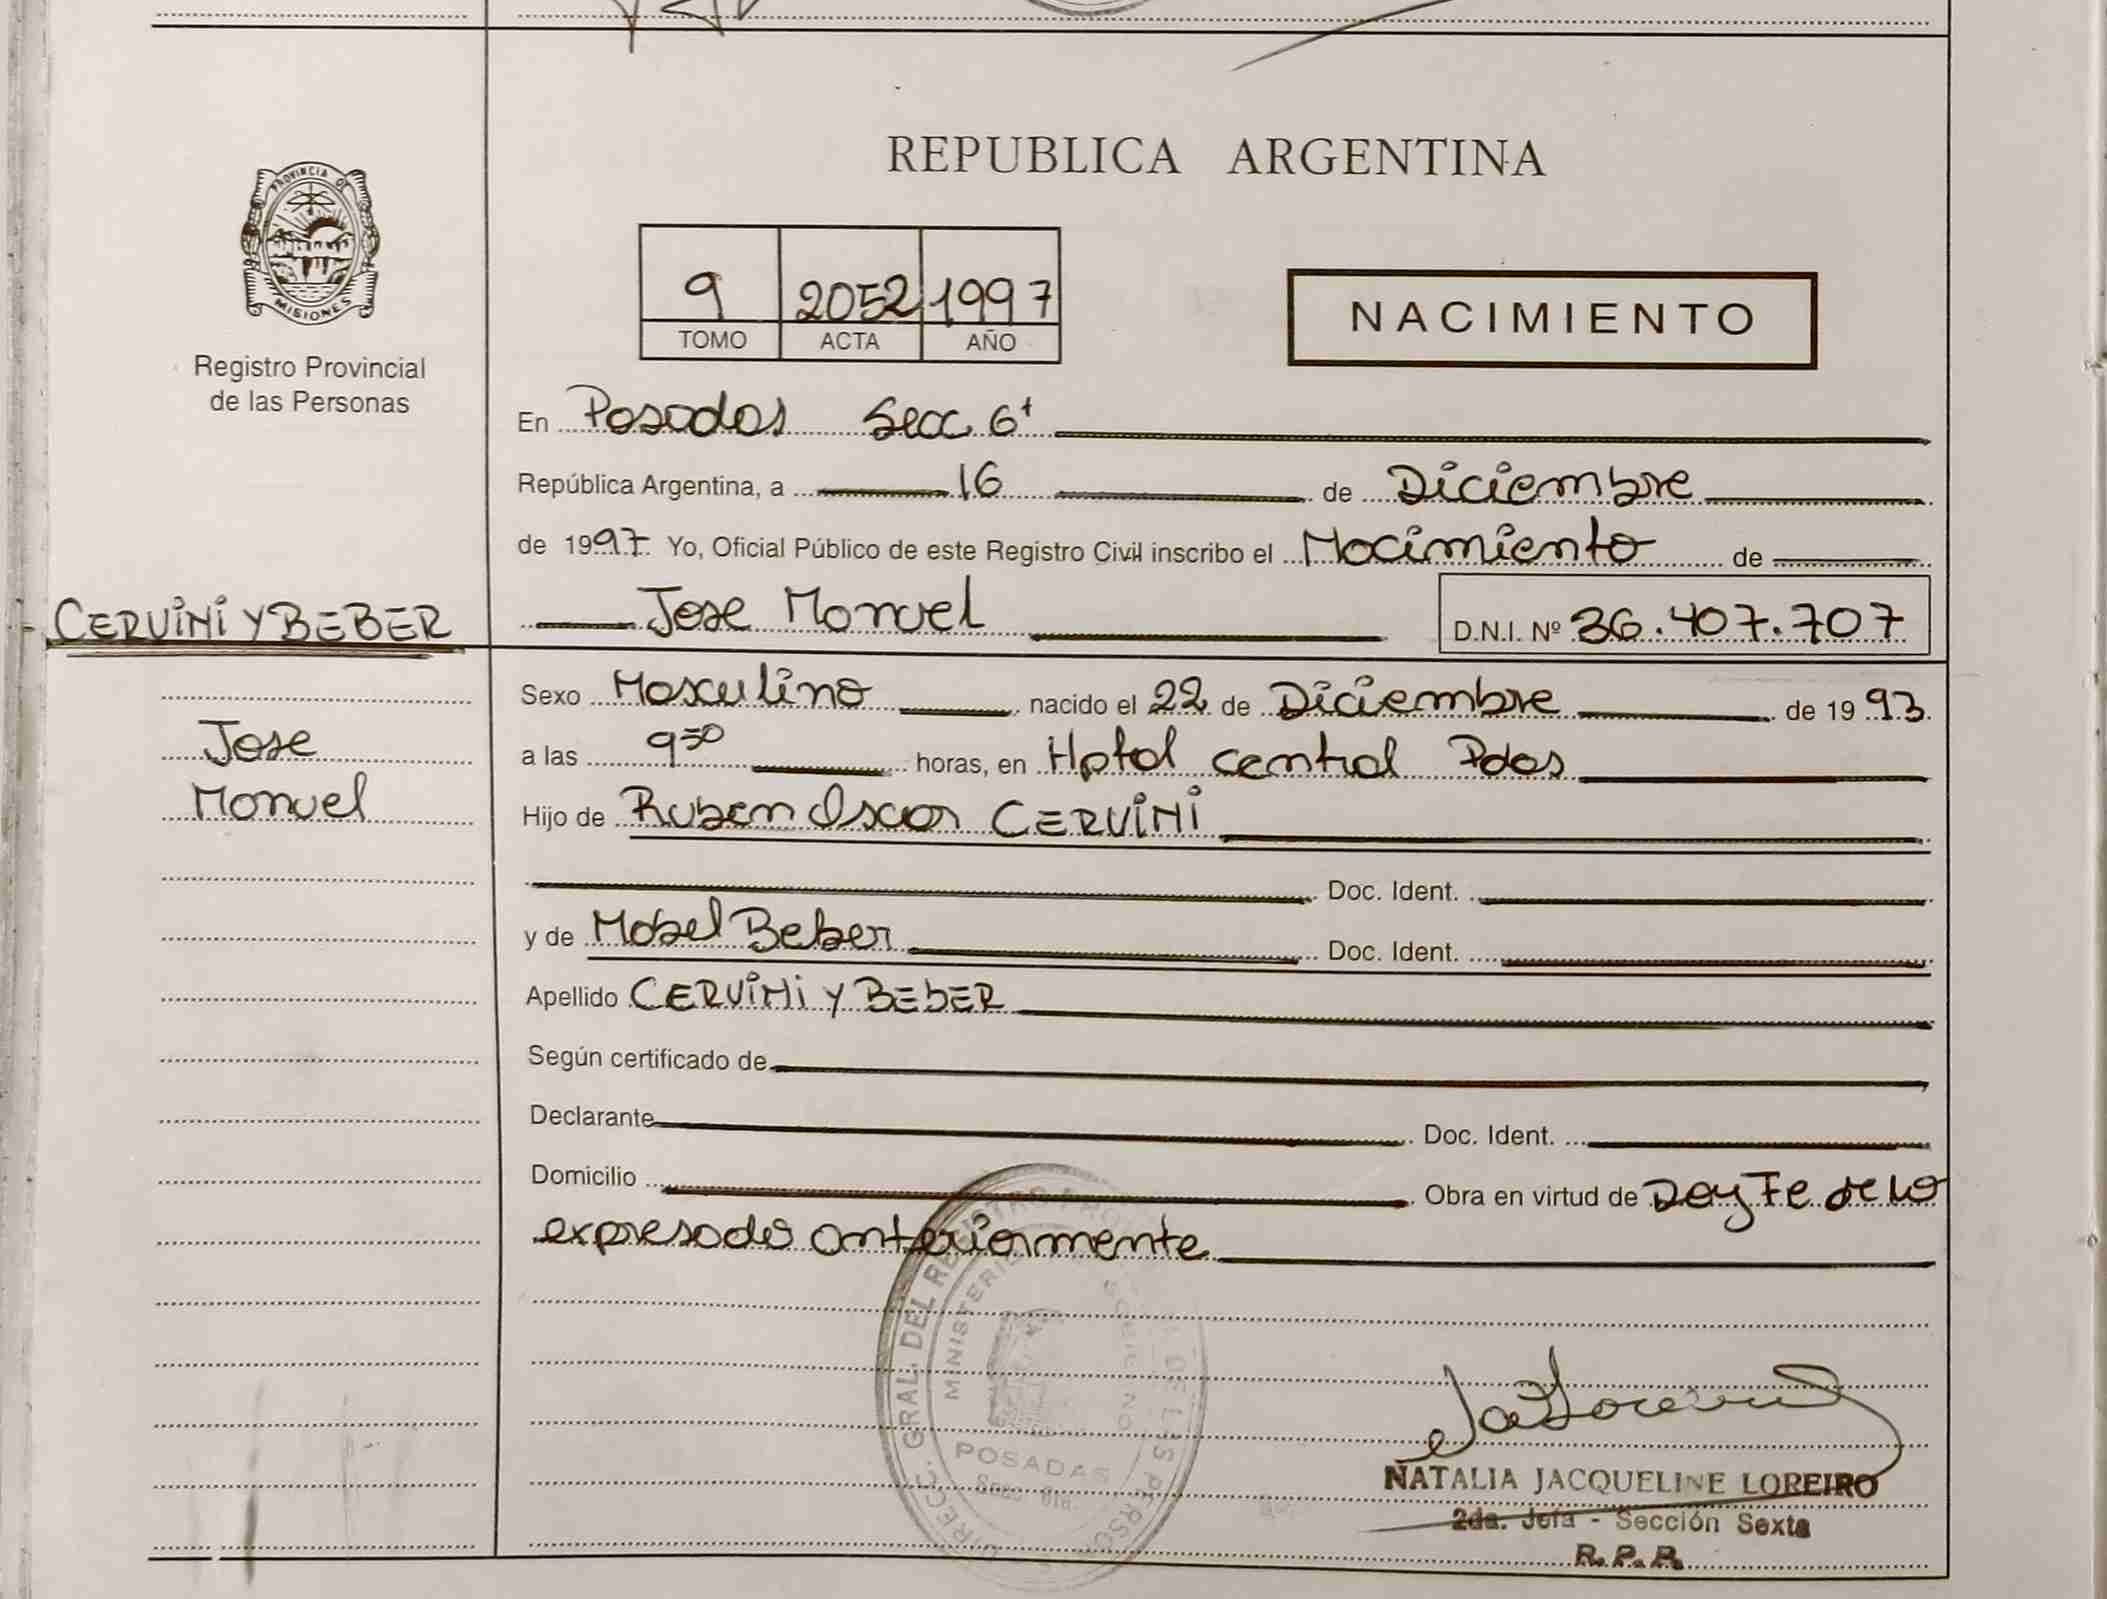 REPUBLICA ARGENTINA
PROVINCIA DE
MISIONES
Registro Provincial
de las Personas
9 2052 1997
TOMO ACTA AÑO
NACIMIENTO
En Posadas Secc 6ª
República Argentina, a 16 de Diciembre
de 1997. Yo, Oficial Público de este Registro Civil inscribo el Nacimiento de
CERVINI Y BEBER
Jose Manuel D.N.I. Nº 36.407.707
Jose
Manuel
Sexo Masculino nacido el 22 de Diciembre de 1993
a las 9 50 horas, en Hptal central Pdas
Hijo de Ruben Oscar CERVINI
Doc. Ident.
y de Mabel Beber Doc. Ident.
Apellido CERVINI Y BEBER
Según certificado de
Declarante Doc. Ident.
Domicilio Obra en virtud de Doy Fe de lo
expresado anteriormente
DIRECC. GRAL. DEL REGISTRO DE LAS PERSO
MINISTERI GOBIERNO
POSADAS
NATALIA JACQUELINE LOREIRO
2da. Jefa - Sección Sexta
R.P.P.